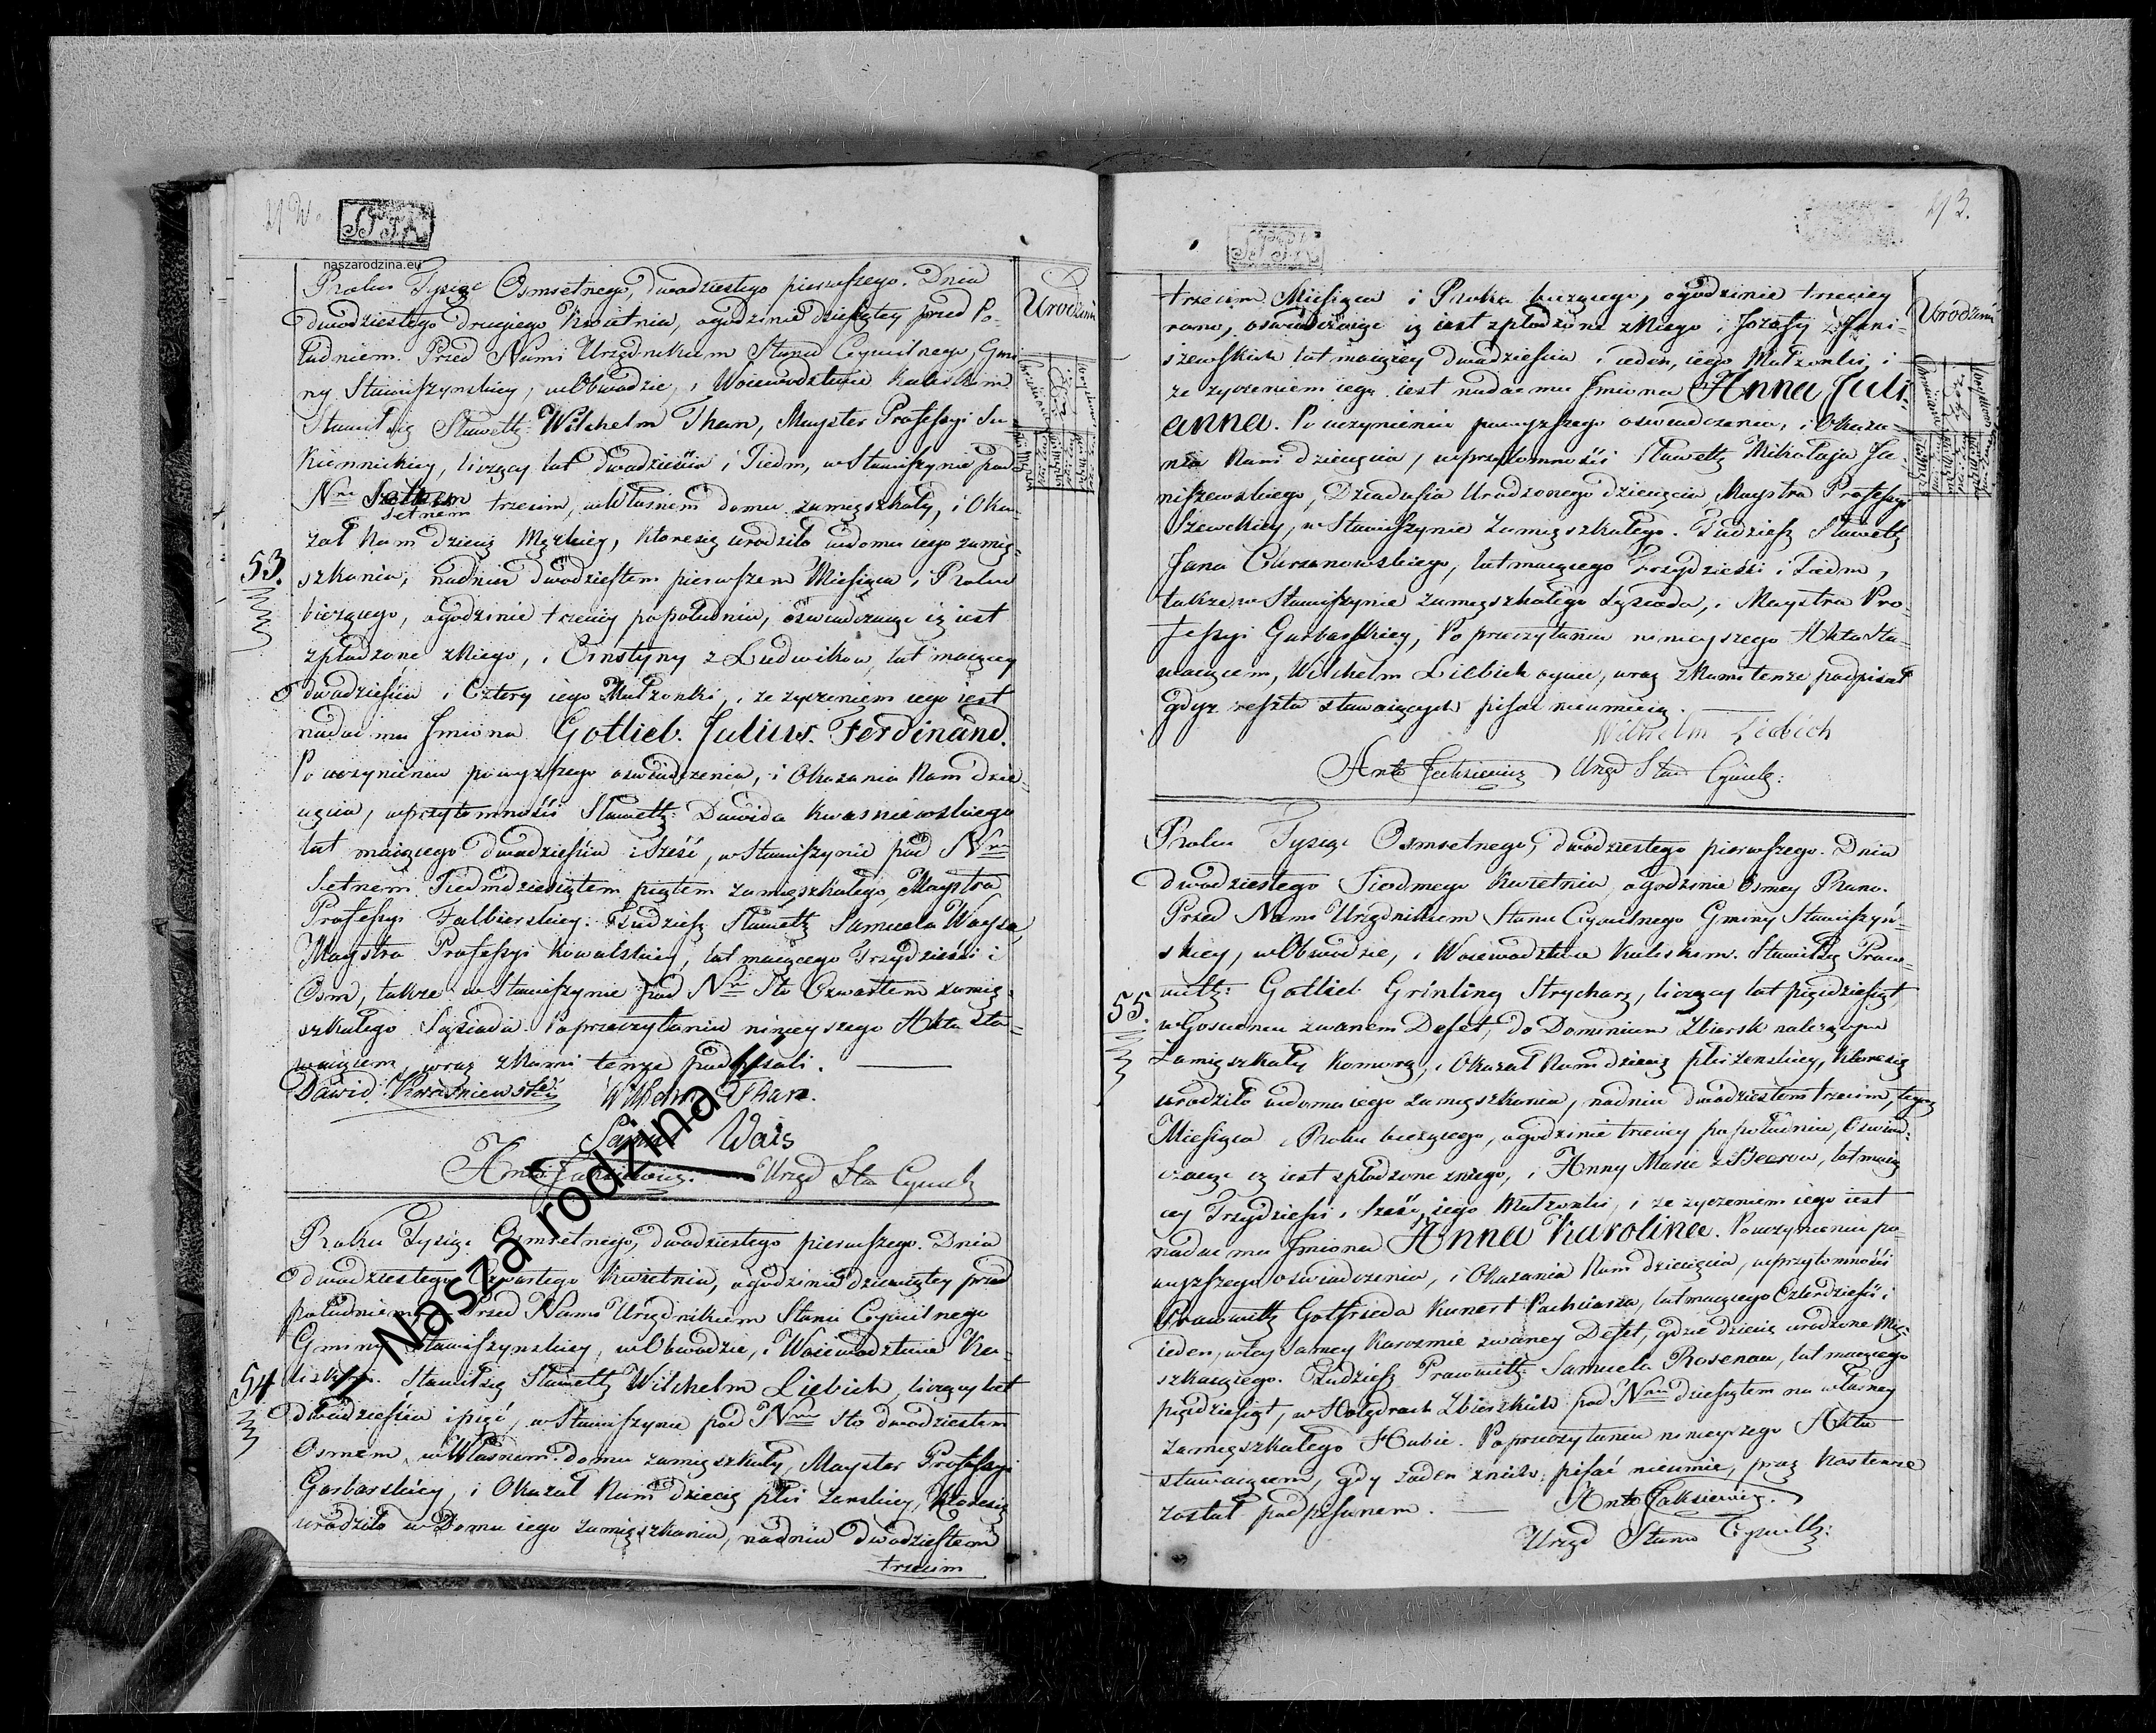 naszarodzina.eu
Roku Tysiąc Osmsetnego, dwadziestego pierwszego. Dnia
dwodziestego drugiego Kwietnia, ogodzinie dziesiątey przed Po-
łudniem. Przed Nami Urzędnikiem Stanu Cywilnego, Gmi
ny Stawiszynskiey, wObwodzie, i Woiewodztwie Kaliskim
Stawił się Sławetz: Wilchelm Than, Mayster Professyi Su
kiennickiey, liczący lat dwadzieścia i Siedm, w Stawiszynie pod
Nrm setnem trzecim, wWłasnem domu zamięszkały, i Oka-
zał Nam dziecię Męzkiey, ktoresię urodziło wdomu iego zamię-
53.
szkania, nadniu dwodziestem pierwszem Miesiąca i Roku
bieżącego, ogodzinie trzeciey popołudniu, oświadczaiąc iż iest
zpłodzone zNiego, i Ernstyny z Ludwikow, lat maiącey
dwadzieścia i Cztery iego Małżonki, i ze życzeniem iego iest
nadać mu Jmiona Gottlieb. Julius. Ferdinand.
Po uczynieniu powyższego oswiadczenia, i Okazania Nam dzie-
cięcia, wprzytomności Sławetz: Dawida Kwasniewskiego
lat maiącego dwadzieścia i sześć, w Stawiszynie pod Nrm
Setnem Siedmdziesiątem piątem zamięszkałego, Maystra
Professyi Falbierskiey. Tudzież Sławetz Samuela Waysa,
Maystra Professyi Kowalskiey, lat maiącego Trzydzieści i
Osm, także w Stawiszynie pod Nrm Sto Czwartem zamię-
szkałego Sąsiada. Poprzeczytaniu ninieyszego Aktu sta-
waiącem, wraz zNami tenże podpisali.
Dawid Kwaśniewski Wilhelm Than.
Samuel Wais
Anto Jaksiewicz. Urzęd Sta Cywilz
Roku Tysiąc Osmsetnego, dwadziestego pierwszego. Dnia
dwadziestego Czwartego Kwietnia, ogodzinie dziewiątey przed
południem. Przed Nami Urzędnikiem Stanu Cywilnego
Gminy Stawiszynskiey, wObwodzie, i Woiewodztwie Ka-
54
liskim. Stawił się Sławetz Wilchelm Liebich, liczący lat
dwadzieścia i pięć, w Stawiszynie pod Nrm sto dwodziestem
Osmem, wWłasnem domu zamięszkały, Mayster Professyi
Garbarskiey, i Okazał Nam dziecię płci żenskiey, Ktoresię
urodziło w Domu iego zamięszkania, nadniu dwodziestem
trzecim
" Nasza rodzina "
93.
Urodzin
trzecim Miesiąca i Roku bieżącego, ogodzinie trzeciey
rano, oświadczaiąc iż iest zpłodzone zNiego i Jozefy z Jani-
szewskich lat maiącey dwadzieścia i ieden, iego Małżonki, i
ze życzeniem iego iest nadać mu Jmiona Anna Juli-
anna. Po uczynieniu powyższego oswiadczenia, i Okaza-
nia Nam dziecięcia, wprzytomności Sławetz Mikołaja Ja
niszewskiego, Dziadusia Urodzonego dziecięcia, Maystra Professyi
Szewckiey, w Stawiszynie zamięszkałego. Tudzież Sławetz
Jana Chrzanowskiego, lat maiącego Trzydzieści i Siedm,
także w Stawiszynie zamięszkałego Sąsiada, i Maystra Pro-
fessyi Garbarskiey, Po przeczytaniu ninieyszego Aktu sta-
waiącem, Wilchelm Liebich oyciec, wraz zNami tenże podpisał
gdyż reszta stawaiących pisać nieumieią.
Wilhelm Liebich
Anto Jaksiewicz Urzęd Sta Cywilz:
Roku Tysiąc Osmsetnego, dwodziestego pierwszego. Dnia
dwadziestego Siodmego Kwietnia, ogodzinie Osmey Rano.
Przed Nami Urzędnikiem Stanu Cywilnego Gminy Stawiszyń-
skiey, wObwodzie, i Woiewodztwie Kaliskim. Stawił się Praco-
witz: Gottlieb Grinling Strycharz, liczący lat pięćdziesiąt,
55.
wGoscincu zwanem Deset, do Dominium Zbiersk należącym
zamięszkały Komorą, i Okazał Nam dziecię płci żenskiey, Ktoresię
urodziło wdomu iego zamięszkania, nadniu dwodziestem trzecim, tegoż
Miesiąca i Roku bieżącego, ogodzinie trzeciey popołudniu, Oświad-
czaiąc iż iest zpłodzone zniego, i Anny Marie z Beerow, lat maią
cey Trzydzieści i Sześć, iego Małżonki, i ze życzeniem iego iest
nadać mu Jmiona Anna Karolina. Pouczynieniu po-
wyższego oświadczenia, i Okazania Nam dziecięcia, wprzytomności
Pracowitz Gottfrieda Kunert Pachciarza, lat maiącego Czterdzieści i
ieden, wtey samey Karczmie zwaney Deset, gdzie dziecię urodzone Mię-
szkaiącego. Tudzież Pracowitz: Samuela Rosenau, lat maiącego
pięćdziesiąt, w Holędrach Zbierskich pod Nrm dziesiątem na własney
zamięszkałego Hubie. Poprzeczytaniu ninieyszego Aktu
stawaiącem, gdy żaden znich pisać nieumie, przez Nas tenże
został podpisanem. Anto Jaksiewicz.
Urzęd Stanu Cywilz: